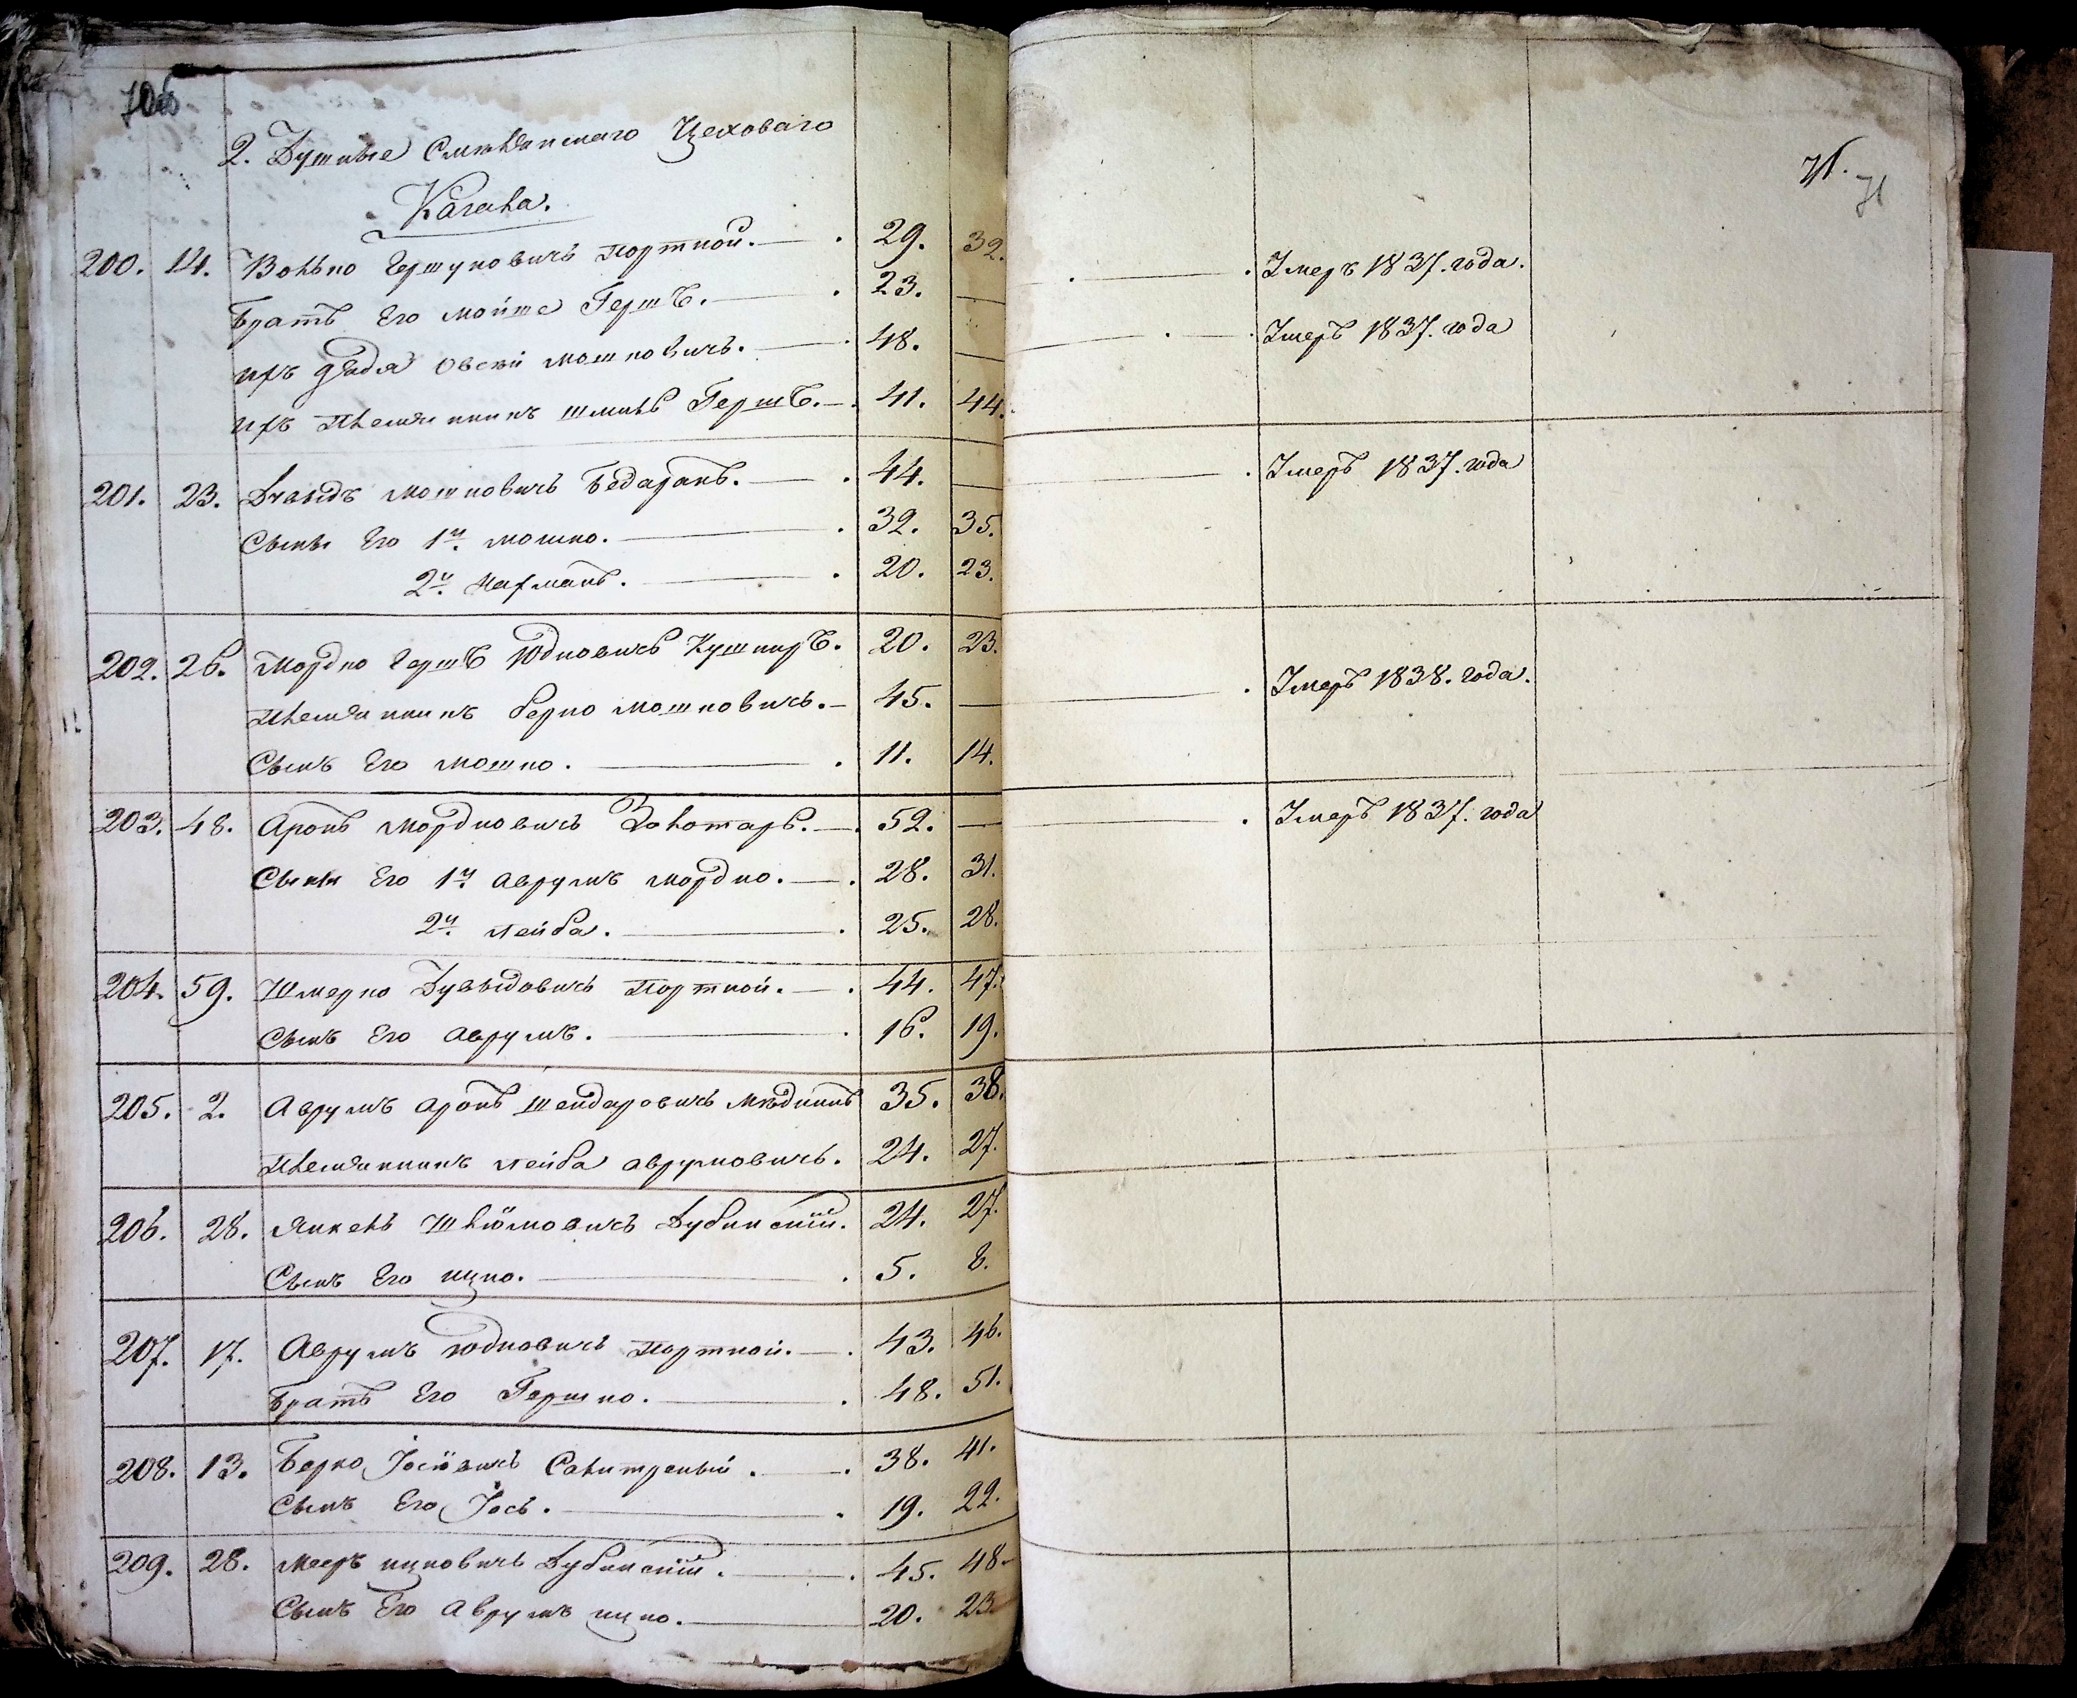 70об
2. Душные Смѣлянскаго Цеховаго
Кагала.
200. 14. Волько Гершуновичъ Портной. 29. 32.
Братъ Его Мойше Гершъ. 23. — Умеръ 1837. года.
ихъ дядя Овсѣй Мошковичъ. 48. — Умеръ 1837. года
ихъ Племянникъ Шмиль Гершъ. 41. 44.
201. 23. Мошковичъ 44. — Умеръ 1837. года
Сыны Его 1й Мошко. 32. 35.
2й Нахманъ. 20. 23.
202. 26. Мордко Гершъ Юдковичъ Кушниръ. 20. 23.
Племянникъ Берко Мошковичъ. 45. — Умеръ 1838. года.
Сынъ Его Мошко. 11. 14.
203. 48. Аронъ Мордковичъ Золотарь. 52. — Умеръ 1837. года
Сыны Его 1й Аврумъ Мордко. 28. 31.
2й Лейба. 25. 28.
204. 59. Шмерко Дувыдовичъ Портной. 44. 47.
Сынъ Его Аврумъ. 16. 19.
205. 2. Аврумъ Аронъ Шендаровичъ Мѣдникъ 35. 38.
Племянникъ Лейба Аврумовичъ. 24. 27.
206. 28. Янкель Шлёмовичъ Дубинскій. 24. 27.
Сынъ Его Ицко. 5. 8.
207. 17. Аврумъ Юдковичъ Портной. 43. 46.
Братъ Его Гершко. 48. 51.
208. 13. Берко Іосіовичъ Салитреный. 38. 41.
Сынъ Его Іось. 19. 22.
209. 28. Мееръ Ицковичъ Дубинскій. 45. 48.
Сынъ Его Аврумъ Ицко. 20. 23.
71. 71